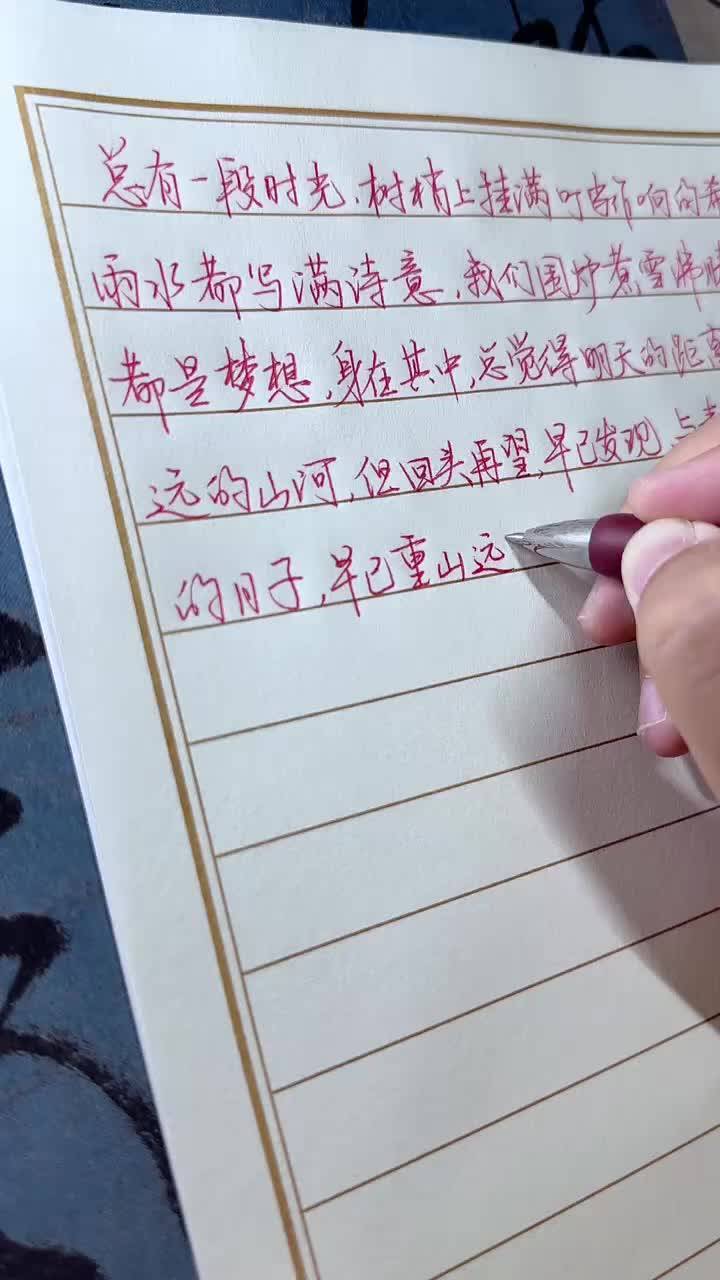 总有一段时光，树梢上挂满叮当作响的希
雨水都写满诗意，我们围炉煮雪沸腾
都是梦想，身在其中，总觉得明天的距离
远的山河，但回头再望，早已发现
的日子，早已重山远